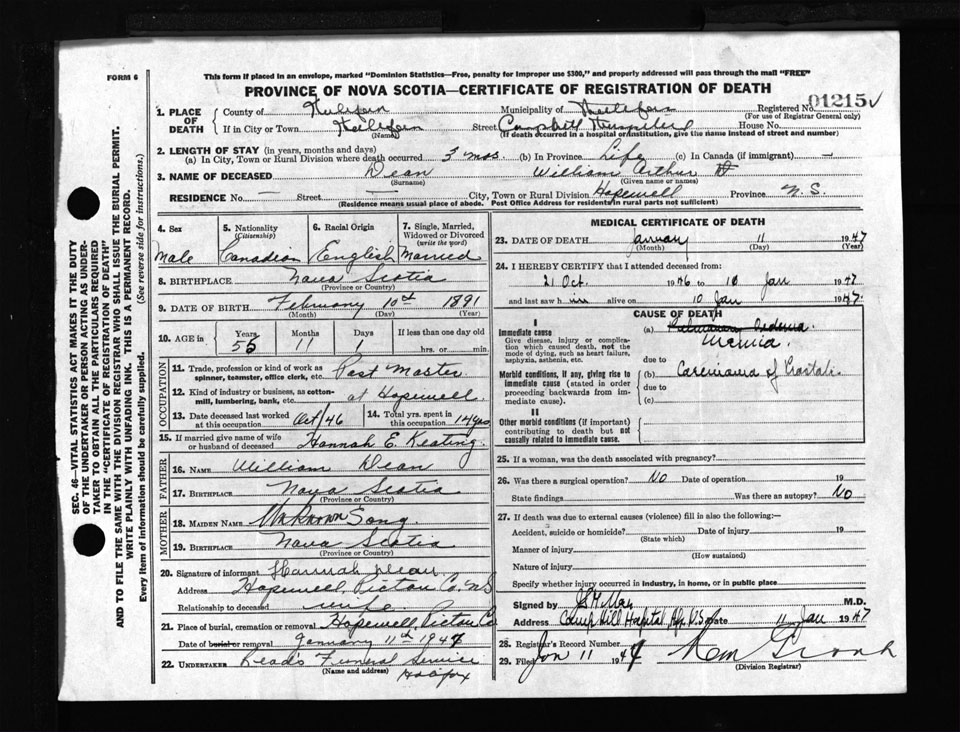 FORM 6
This form if placed in an envelope, marked "Dominion Statistics—Free, penalty for improper use $300," and properly addressed will pass through the mail "FREE"
PROVINCE OF NOVA SCOTIA—CERTIFICATE OF REGISTRATION OF DEATH
01215
1. PLACE OF DEATH County of Municipality of Registered No.
(For use of Registrar General only)
If in City or Town Street House No.
(Name) (If death occurred in a hospital or institution, give the name instead of street and number)
2. LENGTH OF STAY (in years, months and days)
(a) In City, Town or Rural Division where death occurred 3 mos. (b) In Province Life (c) In Canada (if immigrant) —
3. NAME OF DECEASED Dean William Arthur
(Surname) (Given name or names)
RESIDENCE No. — Street — City, Town or Rural Division Hopewell Province N.S.
(Residence means usual place of abode. Post Office Address for residents in rural parts not sufficient)
4. Sex Male
5. Nationality (Citizenship) Canadian
6. Racial Origin English
7. Single, Married, Widowed or Divorced (write the word) Married
8. BIRTHPLACE Nova Scotia
(Province or Country)
9. DATE OF BIRTH February 10th 1891
(Month) (Day) (Year)
10. AGE in Years 55 Months 11 Days 1 If less than one day hrs. or min.
OCCUPATION
11. Trade, profession or kind of work as spinner, teamster, office clerk, etc. Post Master
12. Kind of industry or business, as cotton-mill, lumbering, bank, etc. at Hopewell
13. Date deceased last worked at this occupation Oct/46
14. Total yrs. spent in this occupation 14 yrs
15. If married give name of wife or husband of deceased Hannah E. Keating
FATHER
16. NAME William Dean
17. BIRTHPLACE Nova Scotia
(Province or Country)
MOTHER
18. MAIDEN NAME Unknown Song
19. BIRTHPLACE Nova Scotia
(Province or Country)
20. Signature of informant Hannah Dean
Address Hopewell, Pictou Co. N.S
Relationship to deceased wife
21. Place of burial, cremation or removal Hopewell, Pictou Co
Date of burial or removal January 11th 1947
22. UNDERTAKER Funeral Service
(Name and address) Halifax
MEDICAL CERTIFICATE OF DEATH
23. DATE OF DEATH January 11 1947
(Month) (Day) (Year)
24. I HEREBY CERTIFY that I attended deceased from:
21 Oct. 1946 to 10 Jan 1947
and last saw him alive on 10 Jan 1947.
CAUSE OF DEATH
I
Immediate cause
Give disease, injury or complication which caused death, not the mode of dying, such as heart failure, asphyxia, asthenia, etc.
(a) Uremia.
due to
Morbid conditions, if any, giving rise to immediate cause (stated in order proceeding backwards from immediate cause).
(b) Carcinoma of
due to
(c)
II
Other morbid conditions (if important) contributing to death but not causally related to immediate cause.
25. If a woman, was the death associated with pregnancy?
26. Was there a surgical operation? No Date of operation 19
State findings Was there an autopsy? No
27. If death was due to external causes (violence) fill in also the following:—
Accident, suicide or homicide? Date of injury 19
(State which)
Manner of injury
(How sustained)
Nature of injury
Specify whether injury occurred in industry, in home, or in public place
Signed by M.D.
Address Camp Hill Hospital, Date 11 Jan 1947
28. Registrar's Record Number
29. Filed Jan 11 1947
(Division Registrar)
SEC. 46—VITAL STATISTICS ACT MAKES IT THE DUTY OF THE UNDERTAKER OR PERSON ACTING AS UNDERTAKER TO OBTAIN ALL THE PARTICULARS REQUIRED IN THE "CERTIFICATE OF REGISTRATION OF DEATH" AND TO FILE THE SAME WITH THE DIVISION REGISTRAR WHO SHALL ISSUE THE BURIAL PERMIT.
WRITE PLAINLY WITH UNFADING INK. THIS IS A PERMANENT RECORD.
Every item of information should be carefully supplied. (See reverse side for instructions.)